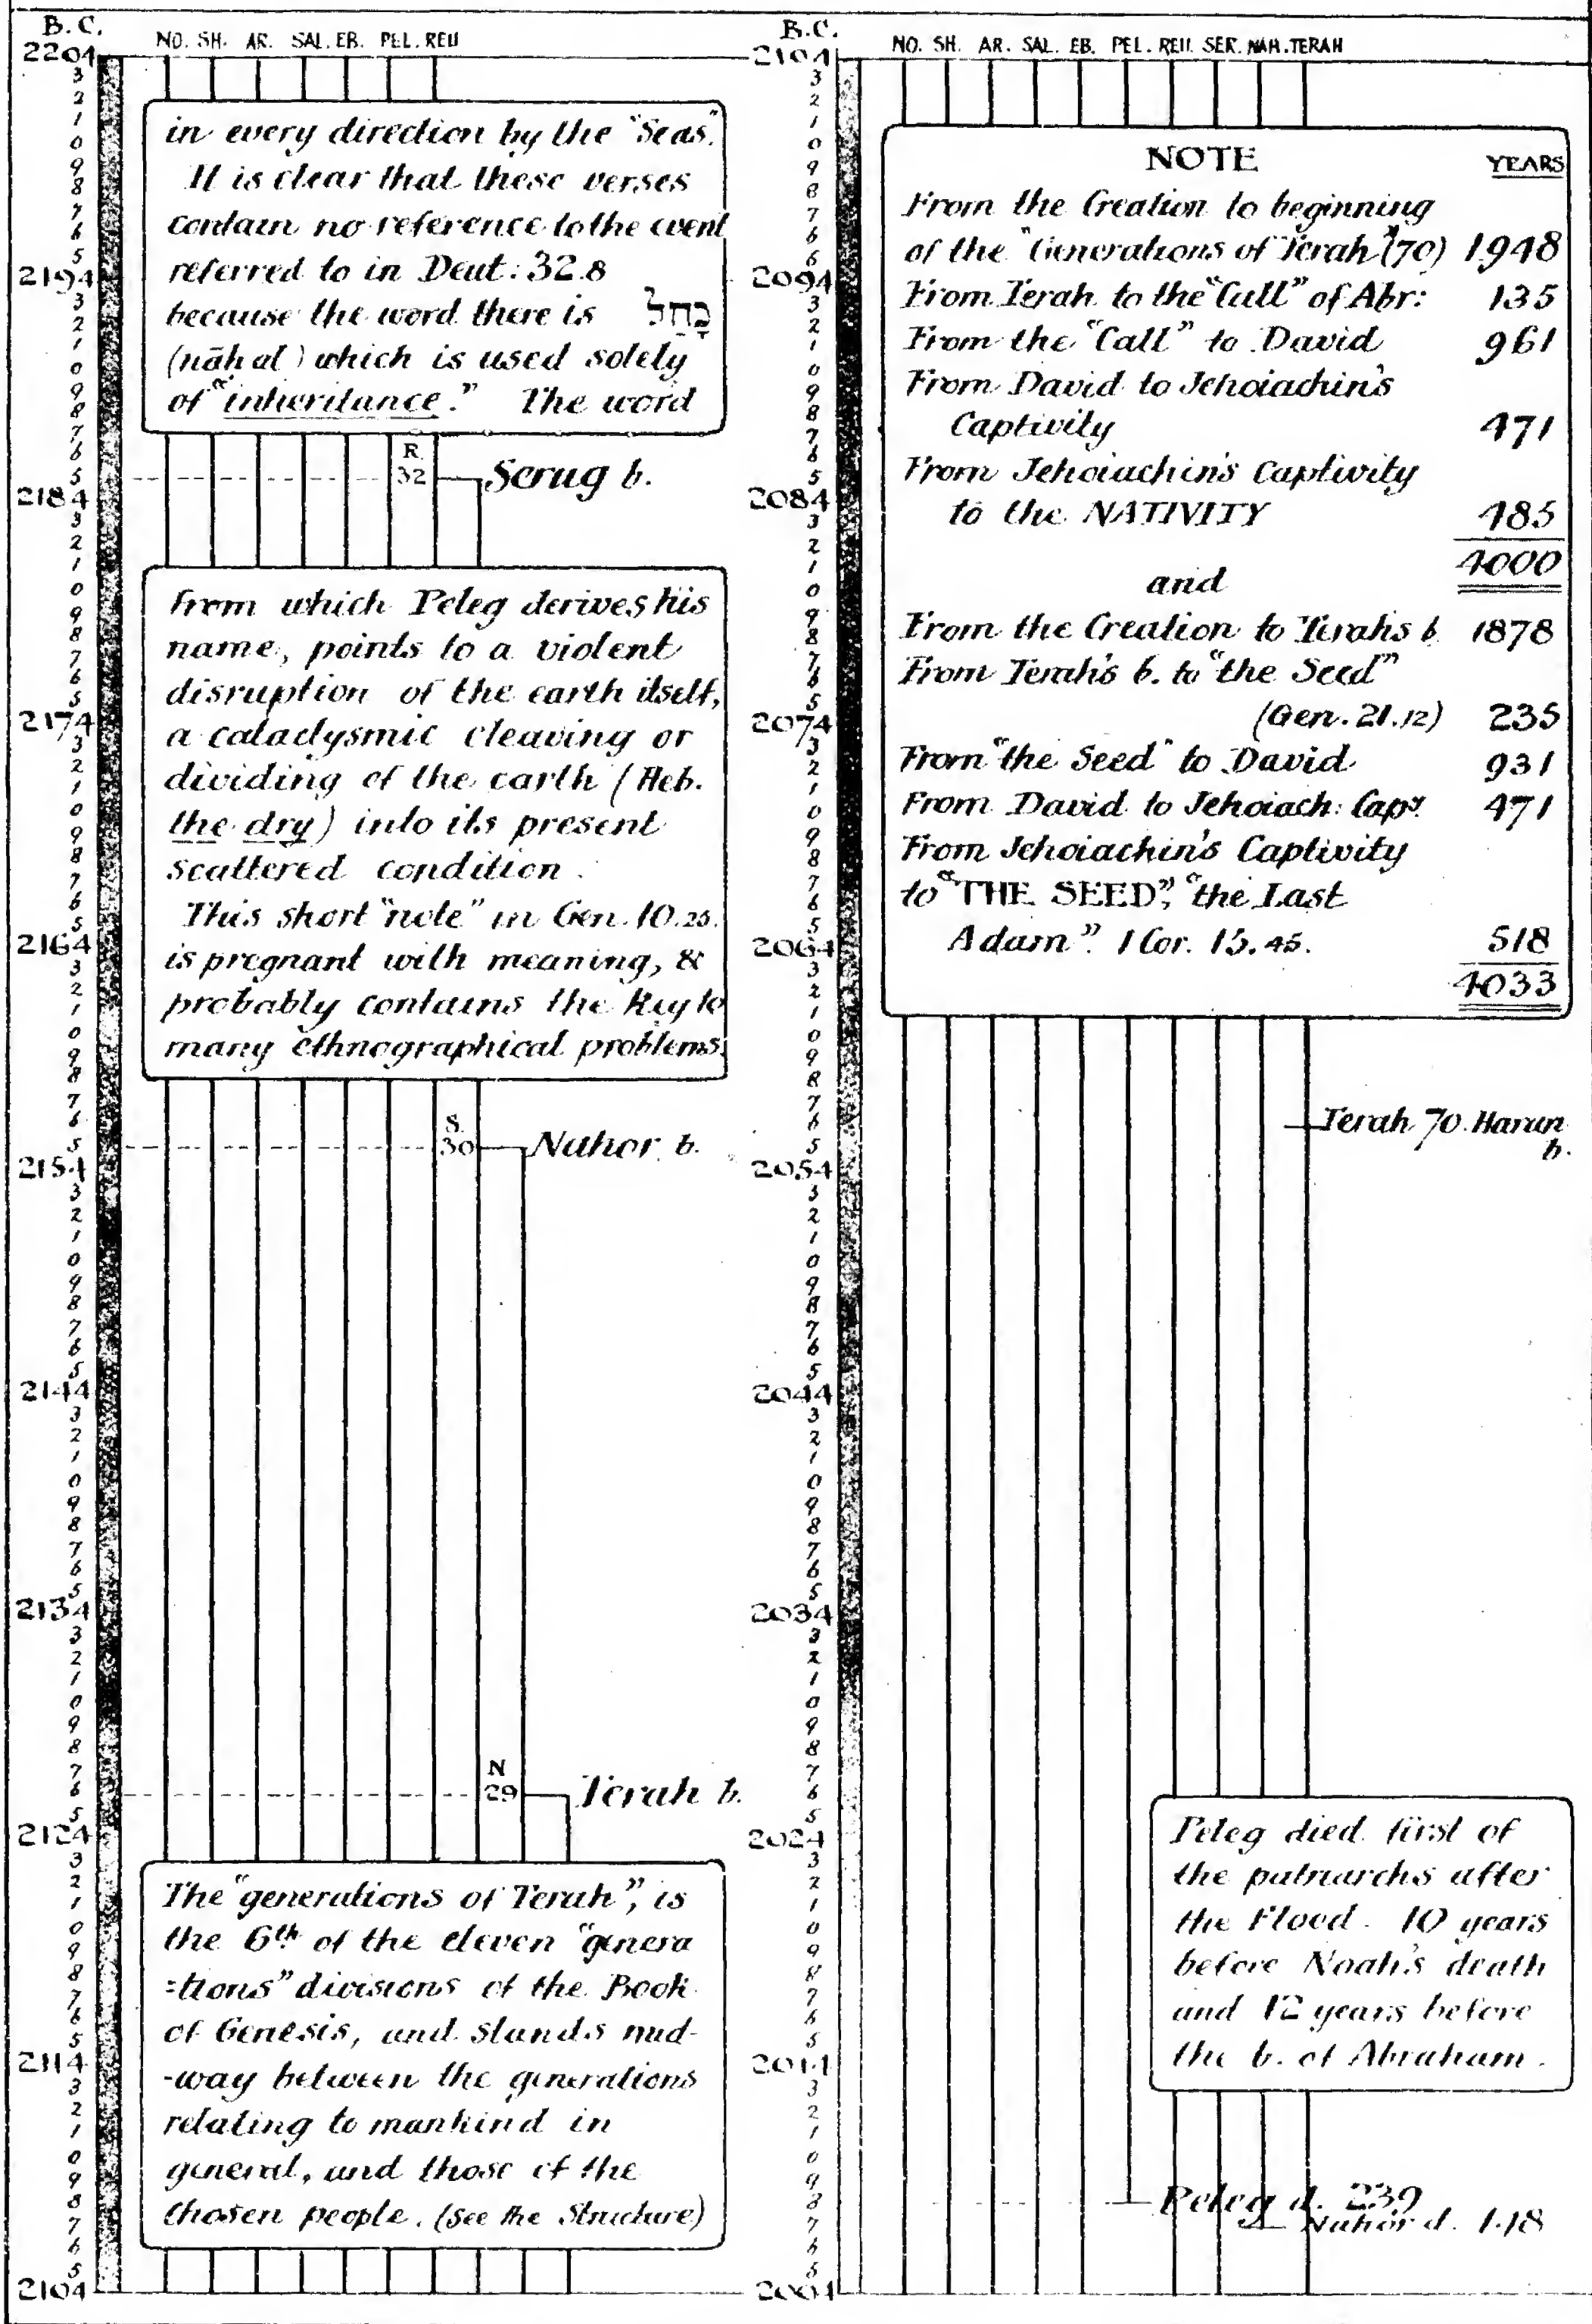 B.C.
NO. SH. AR. SAL. EB. PEL. REU
2204
3
2
1
0
9
8
7
6
5
2194
3
2
1
0
9
8
7
6
5
2184
3
2
1
0
9
8
7
6
5
2174
3
2
1
0
9
8
7
6
5
2164
3
2
1
0
9
8
7
6
5
2154
3
2
1
0
9
8
7
6
5
2144
3
2
1
0
9
8
7
6
5
2134
3
2
1
0
9
8
7
6
5
2124
3
2
1
0
9
8
7
6
5
2114
3
2
1
0
9
8
7
6
5
2104
in every direction by the "Seas".
It is clear that these verses
contain no reference to the event
referred to in Deut: 32.8
because the word there is נָחַל
(nāhal) which is used solely
of "inheritance." The word
R.
32
Serug b.
from which Peleg derives his
name, points to a violent
disruption of the earth itself,
a cataclysmic cleaving or
dividing of the earth (Heb.
the dry) into its present
scattered condition.
This short "note" in Gen. 10.25.
is pregnant with meaning, &
probably contains the key to
many ethnographical problems.
S.
30
Nahor b.
N
29
Terah b.
The "generations of Terah", is
the 6th of the eleven "genera
=tions" divisions of the Book
of Genesis, and stands mid-
-way between the generations
relating to mankind in
general, and those of the
chosen people. (See the Structure)
B.C.
NO. SH. AR. SAL. EB. PEL. REU. SER. NAH. TERAH
2104
3
2
1
0
9
8
7
6
5
2094
3
2
1
0
9
8
7
6
5
2084
3
2
1
0
9
8
7
6
5
2074
3
2
1
0
9
8
7
6
5
2064
3
2
1
0
9
8
7
6
5
2054
3
2
1
0
9
8
7
6
5
2044
3
2
1
0
9
8
7
6
5
2034
3
2
1
0
9
8
7
6
5
2024
3
2
1
0
9
8
7
6
5
2014
3
2
1
0
9
8
7
6
5
2004
NOTE YEARS
From the Creation to beginning
of the "Generations of Terah" (70) 1948
From Terah to the "Call" of Abr: 135
From the "Call" to David 961
From David to Jehoiachin's
Captivity 471
From Jehoiachin's Captivity
to the NATIVITY 485
4000
and
From the Creation to Terah's b. 1878
From Terah's b. to "the Seed"
(Gen. 21.12) 235
From "the Seed" to David 931
From David to Jehoiach: Capy. 471
From Jehoiachin's Captivity
to "THE SEED", "the Last
Adam". 1 Cor. 15.45. 518
4033
Terah 70. Haran
b.
Peleg died first of
the patriarchs after
the Flood. 10 years
before Noah's death
and 12 years before
the b. of Abraham.
Peleg d. 239
Nahor d. 148